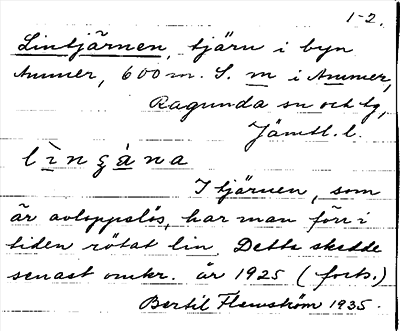 1-2.
Lintjärnen, tjärn i byn
Ammer, 600 m. S. m i Ammer,
Ragunda sn och tg,
Jämtl. l.
lìnʒána
I tjärnen, som
är avloppslös, har man förr i
tiden rötat lin. Detta skedde
senast omkr. år 1925 (forts.)
Bertil Flemström 1935.